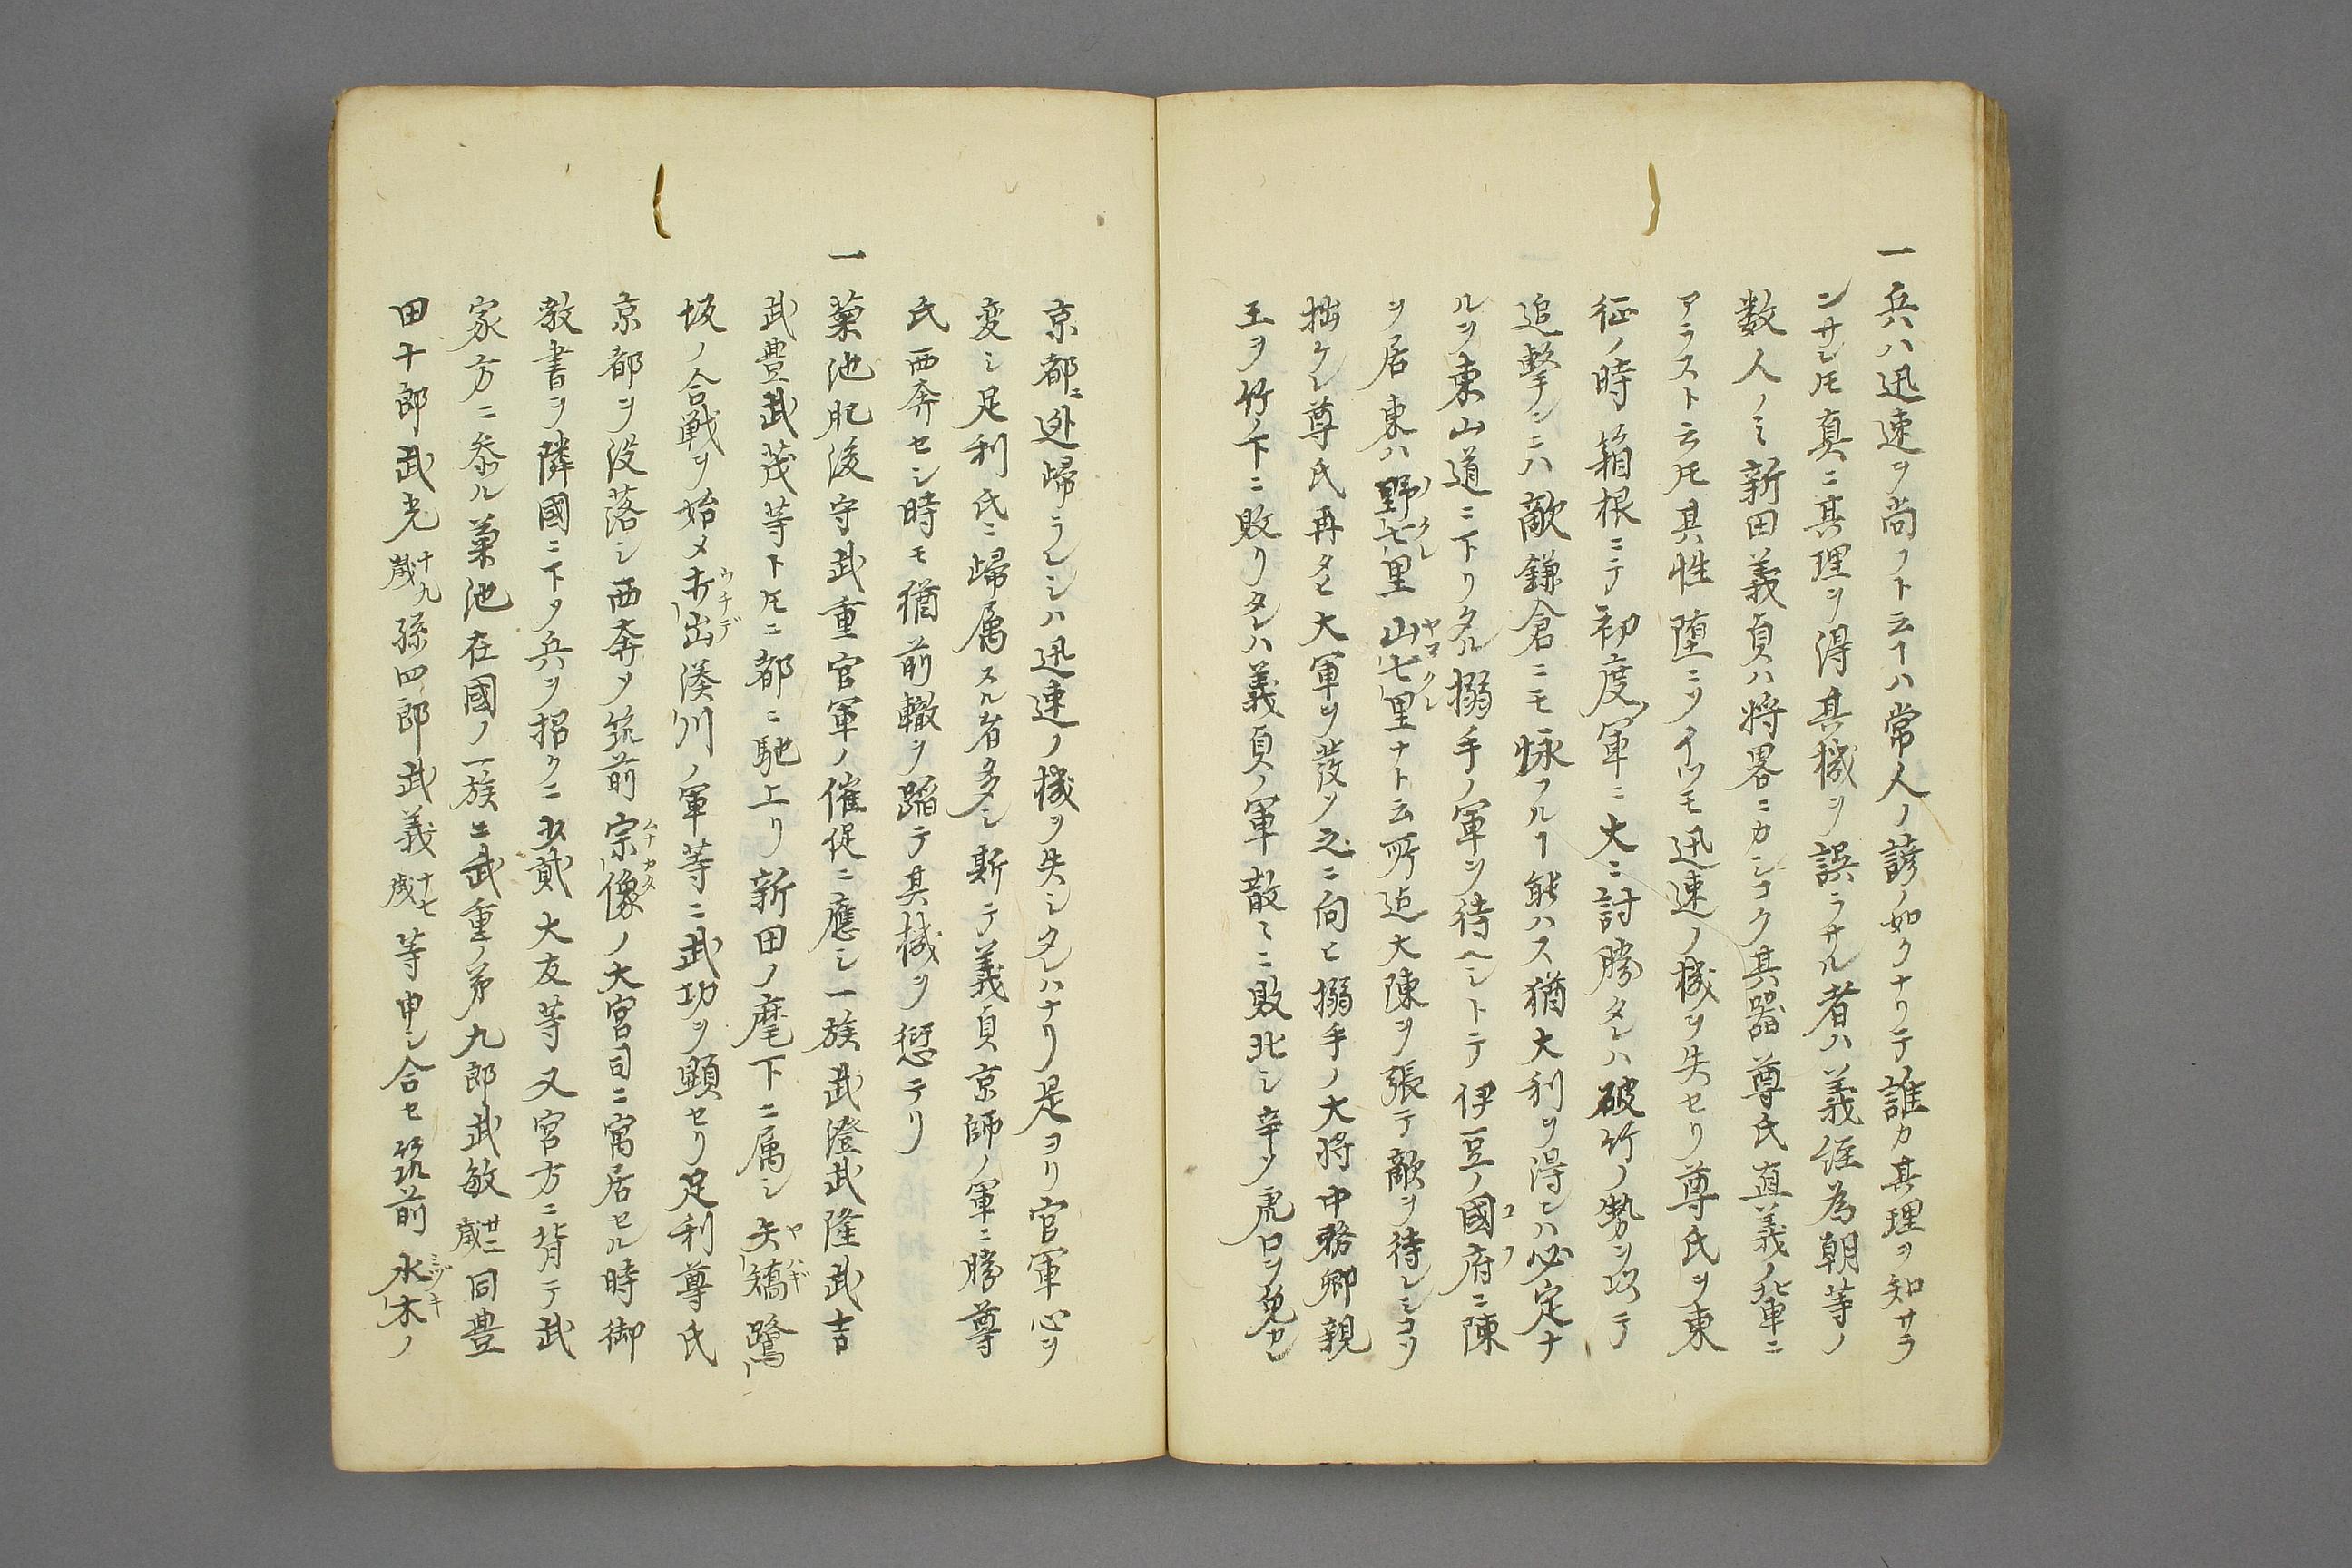 一兵ハ迅速ヲ尚フト云ヿハ常人ノ諺ノ如クナリテ誰カ其理ヲ知サラ
ンサレ𪜈真ニ其理ヲ得其機ヲ誤ラサル者ハ義経為朝等ノ
数人ノミ新田義貞ハ将畧ニカシコク其器尊氏直義ノ輩ニ
アラスト云𪜈其性堕ニツイツモ迅速ノ機ヲ失セリ尊氏ヲ東
征ノ時箱根ニテ初度ノ軍ニ大ニ討勝タレハ破竹ノ勢ヲ以テ
追撃シニハ敵鎌倉ニモ怺フルヿ能ハス猶大利ヲ得ンハ必定ナ
ルヲ東山道ニ下リタル搦手ノ軍ヲ待ヘシトテ伊豆ノ國府コフニ陳
ヲ居東ハ野七里ノクレ山七里ヤマクレナト云所迠大陳ヲ張テ敵ヲ待レシコソ
拙ケレ尊氏再タヒ大軍ヲ發ツ之ニ向ヒ搦手ノ大将中務卿親
王ヲ竹ノ下ニ敗リタレハ義貞ノ軍散〻ニ敗北シ辛ツ虎口ヲ免カレ
京都ニ迯歸ラレシハ迅速ノ機ヲ失シタレハナリ是ヨリ官軍心ヲ
変シ足利氏ニ歸属スル者多シ斯テ義貞京師ノ軍ニ勝尊
氏西奔セシ時モ猶前轍ヲ蹈テ其機ヲ愆テリ
一菊池肥後守武重官軍ノ催促ニ應シ一族武澄武隆武吉
武豊武茂等ト𪜈ニ都ニ馳上リ新田ノ麾下ニ属シ矢矯ヤハギ鷺
坂ノ合戦ヲ始メ打出ウチデ湊川ノ軍等ニ武功ヲ顕セリ足利尊氏
京都ヲ没落シ西奔ノ筑前宗像ムナカタノ大宮司ニ寓居セル時御
教書ヲ隣國ニ下タ兵ヲ招クニ少貳大友等又宮方ニ背テ武
家方ニ参ル菊池在國ノ一族ニ武重ノ弟九郎武敏廿二歳同豊
田十郎武光十九歳孫四郎武義十七歳等申シ合セ筑前水木ミヅキノ